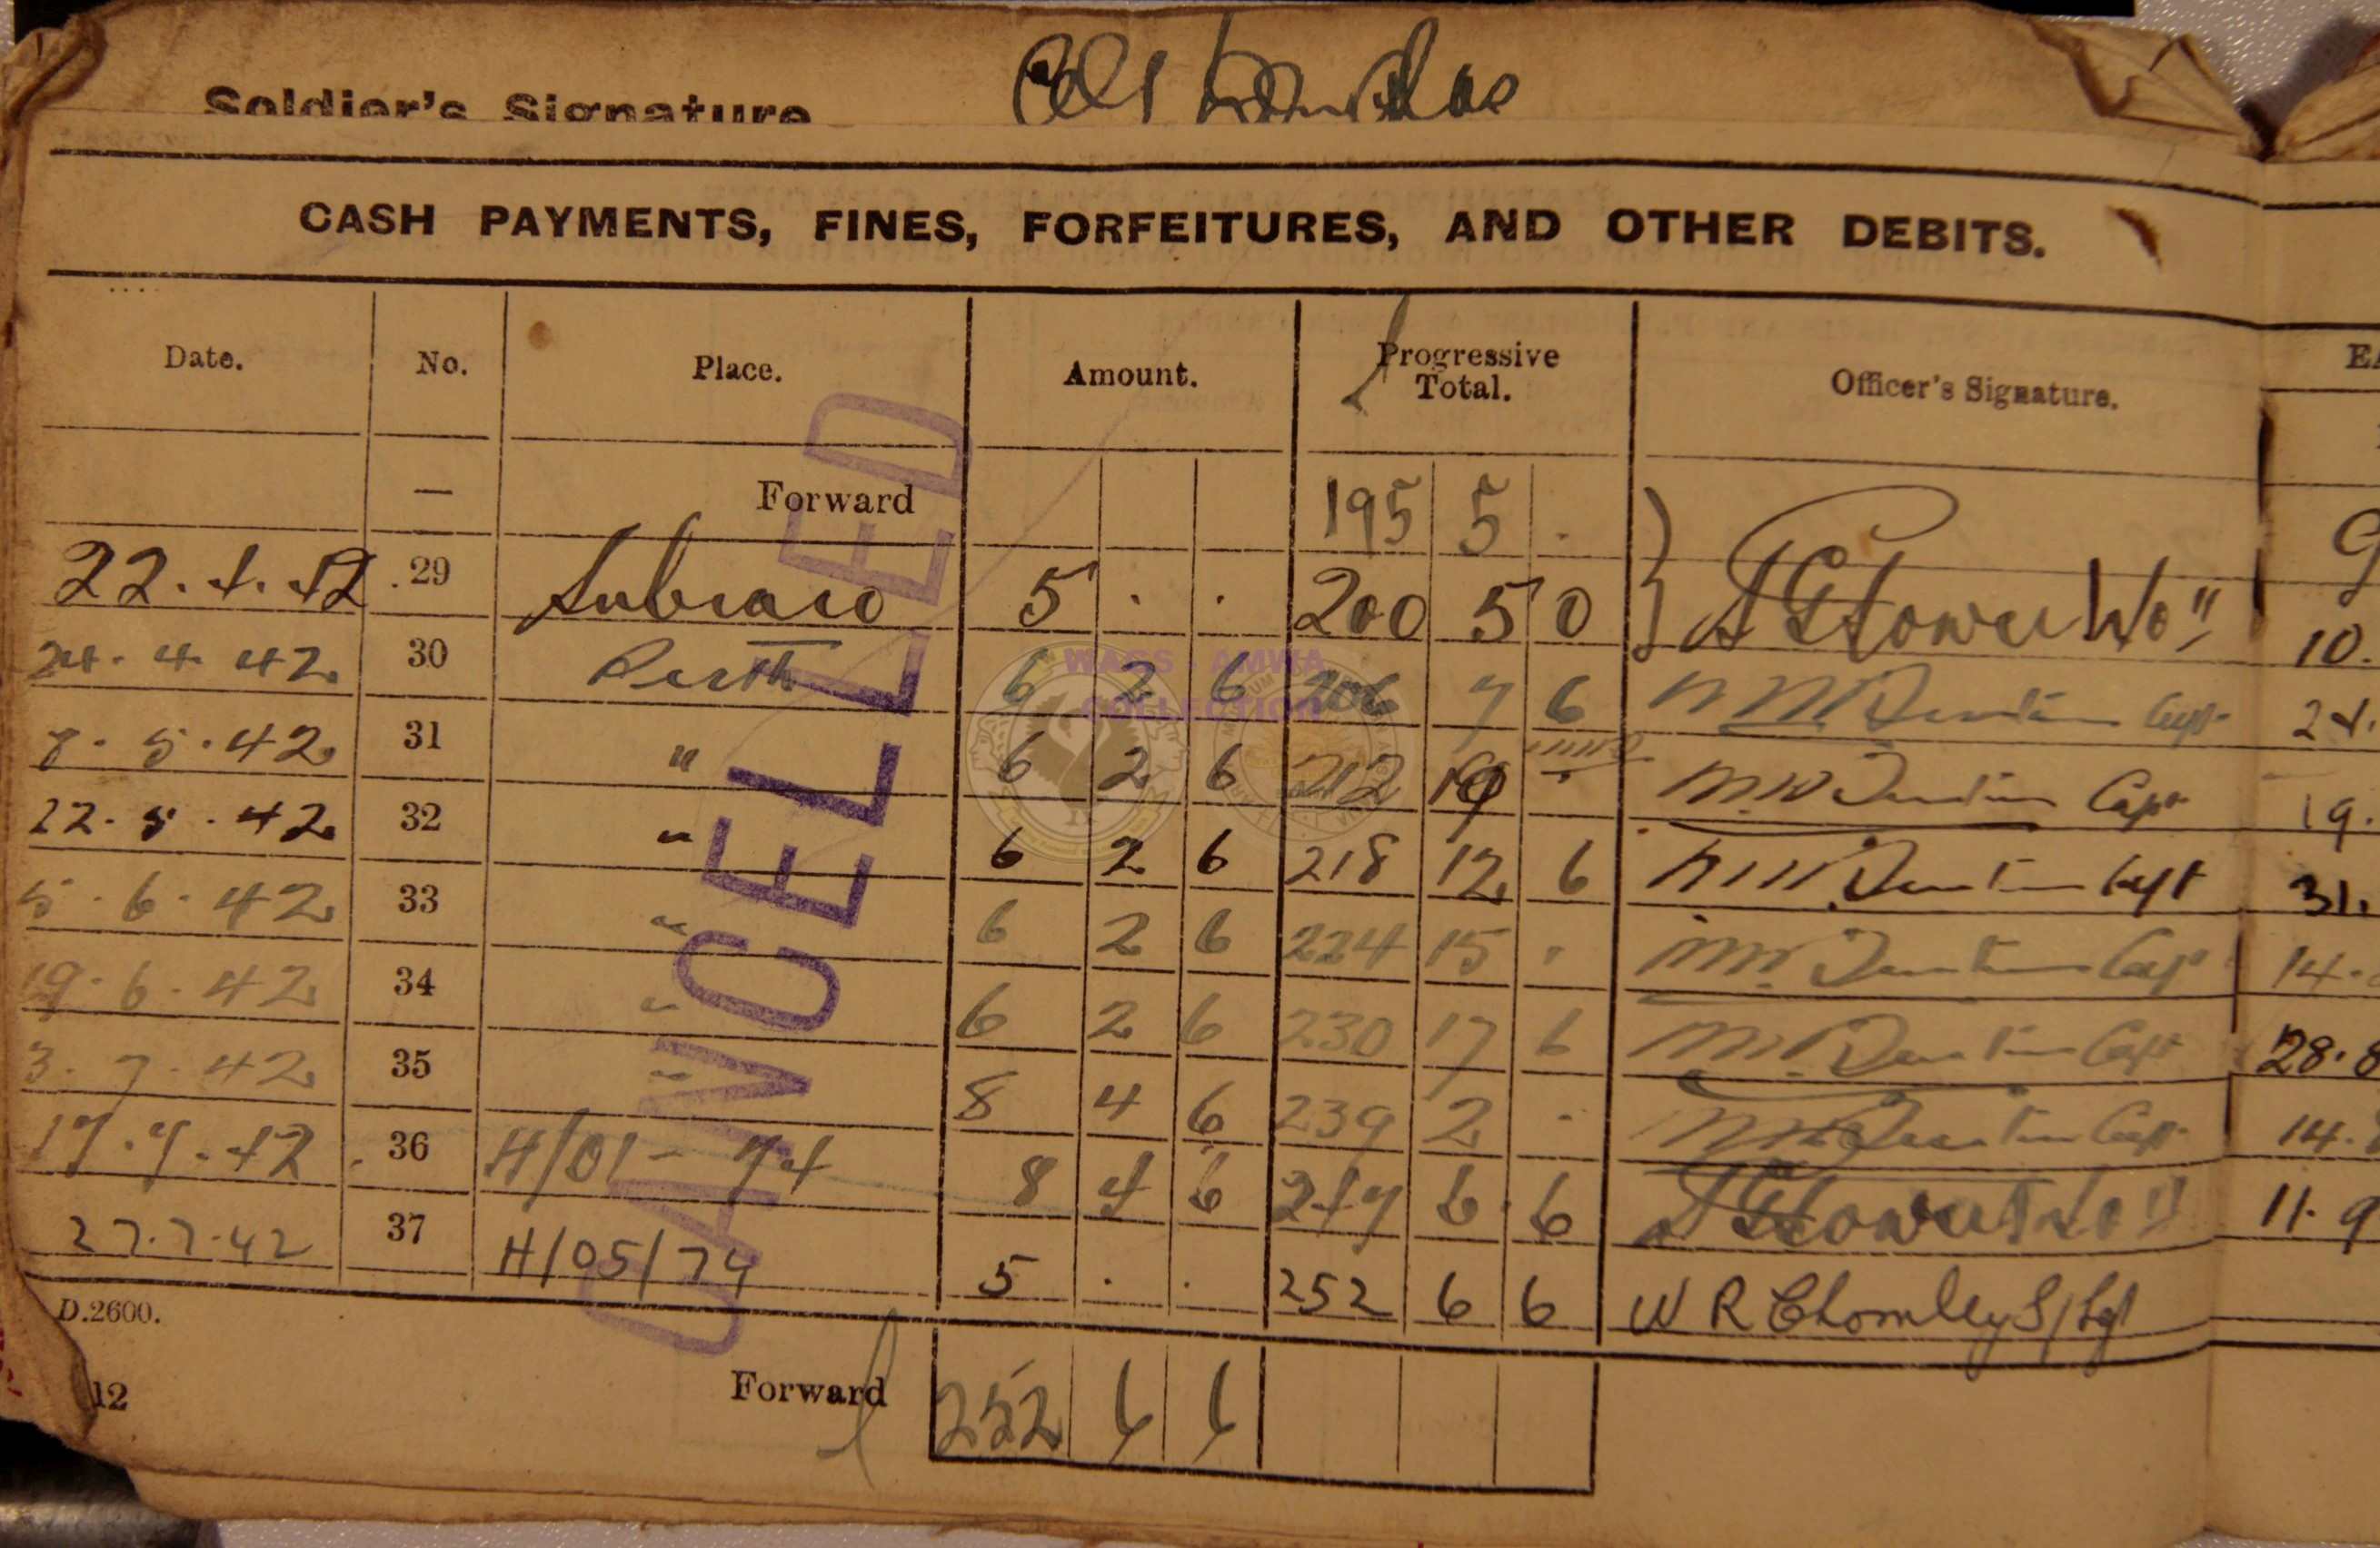 Soldier's Signature
CASH PAYMENTS, FINES, FORFEITURES, AND OTHER DEBITS.
Date. No. Place. Amount. Progressive Total. Officer's Signature.
— Forward 195 5 .
22.4.42 . 29 Subiaco 5 . . 200 5 0
24.4.42 30 Perth 6 2 6 206 7 6 Capt 24.
8.5.42 31 " 6 2 6 212 10 . Capt 19.
22.5.42 32 " 6 2 6 218 12 6 Capt 31.
5.6.42 33 " 6 2 6 224 15 . Capt 14.
19.6.42 34 " 6 2 6 230 17 6 Capt 28.8
3.7.42 35 " 8 4 6 239 2 - Capt 14.
17.7.42 . 36 H/01- 74 8 4 6 247 6 6 11.9
27.7.42 37 H/05/74 5 . . 252 6 6 W R Chomley S/Sgt
D.2600.
12 Forward 252 6 6
CANCELLED
WAGS - AMWA
COLLECTION